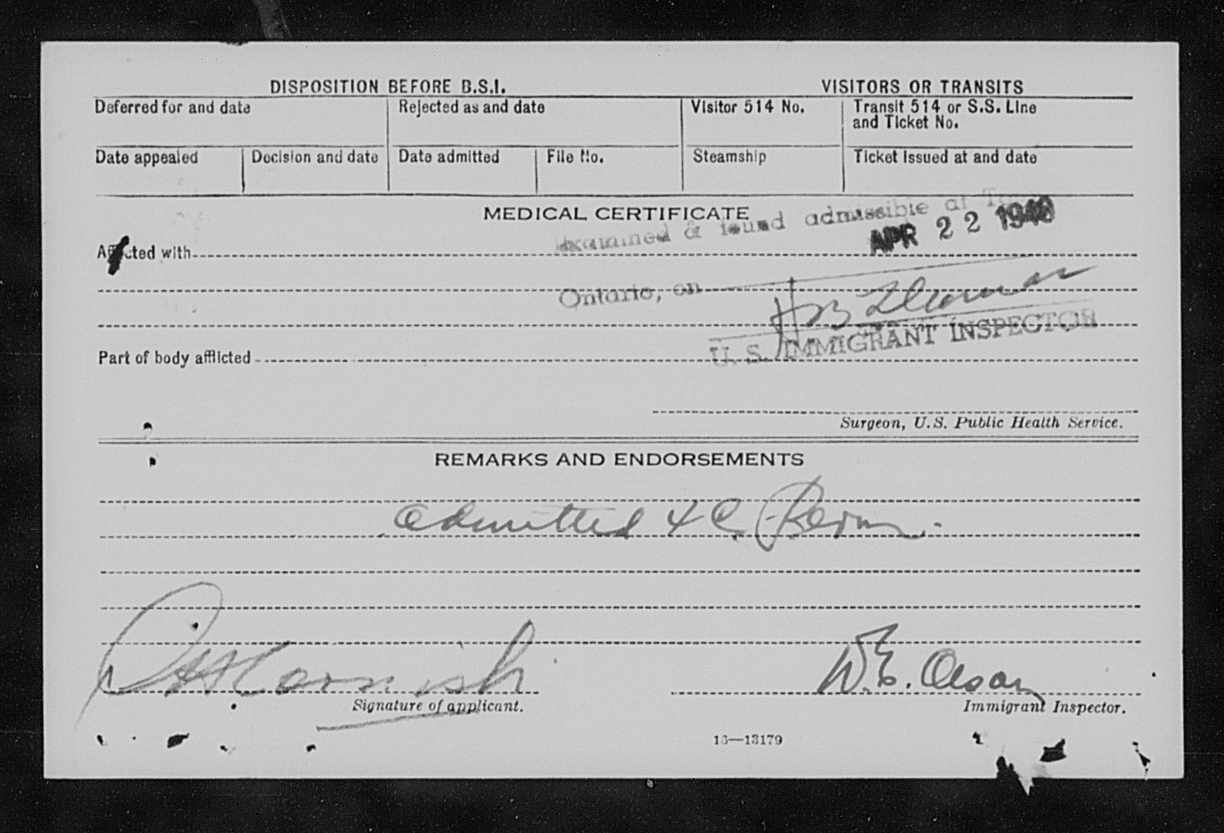 DISPOSITION BEFORE B.S.I.
VISITORS OR TRANSITS
Deferred for and date
Rejected as and date
Visitor 514 No.
Transit 514 or S.S. Line
and Ticket No.
Date appealed
Decision and date
Date admitted
File No.
Steamship
Ticket issued at and date
MEDICAL CERTIFICATE
Examined & found admissible at
APR 22 1940
Afflicted with
Ontario, on
U. S. IMMIGRANT INSPECTOR
Part of body afflicted
Surgeon, U.S. Public Health Service.
REMARKS AND ENDORSEMENTS
Admitted 4 C
Cornish
W.E.
Signature of applicant.
Immigrant Inspector.
16—13179